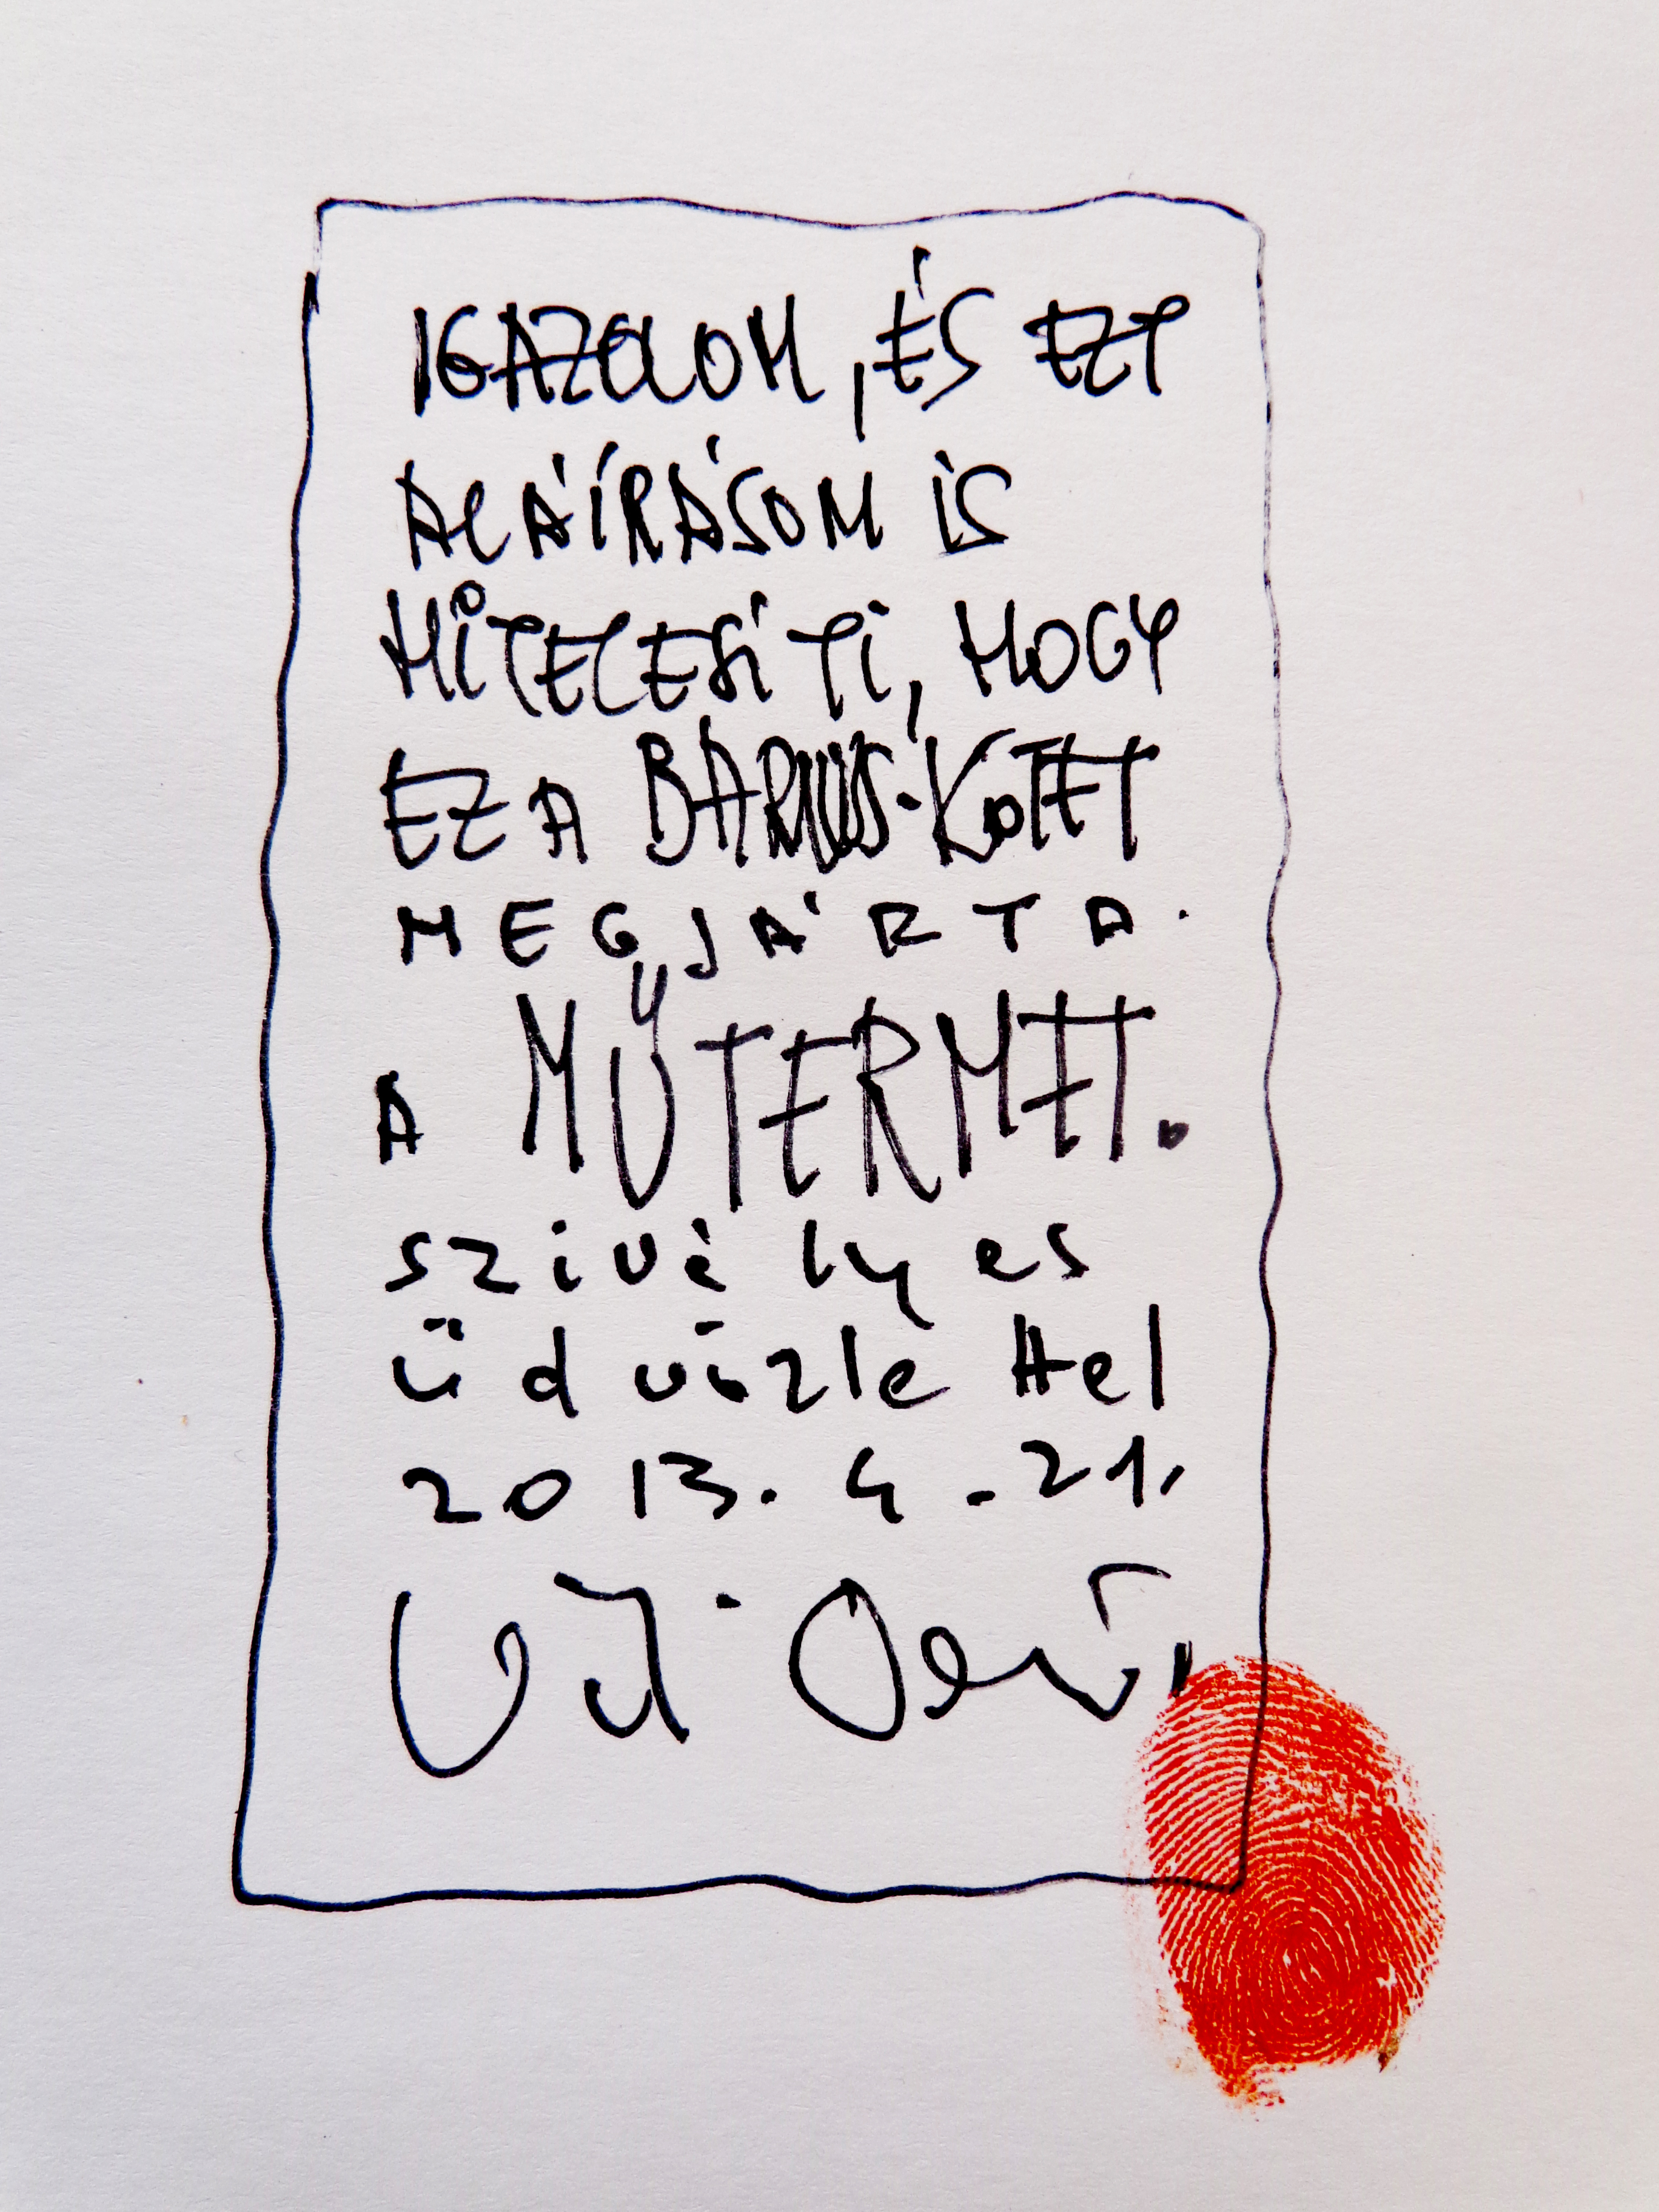 IGAZOLOM, ÉS EZT
ALÁÍRÁSOM IS
HITELESÍTI, HOGY
EZ A BARUS-KÖTET
MEGJÁRTA
A MŰTERMET.
szivélyes
üdvözlettel
2013. 4. 21.